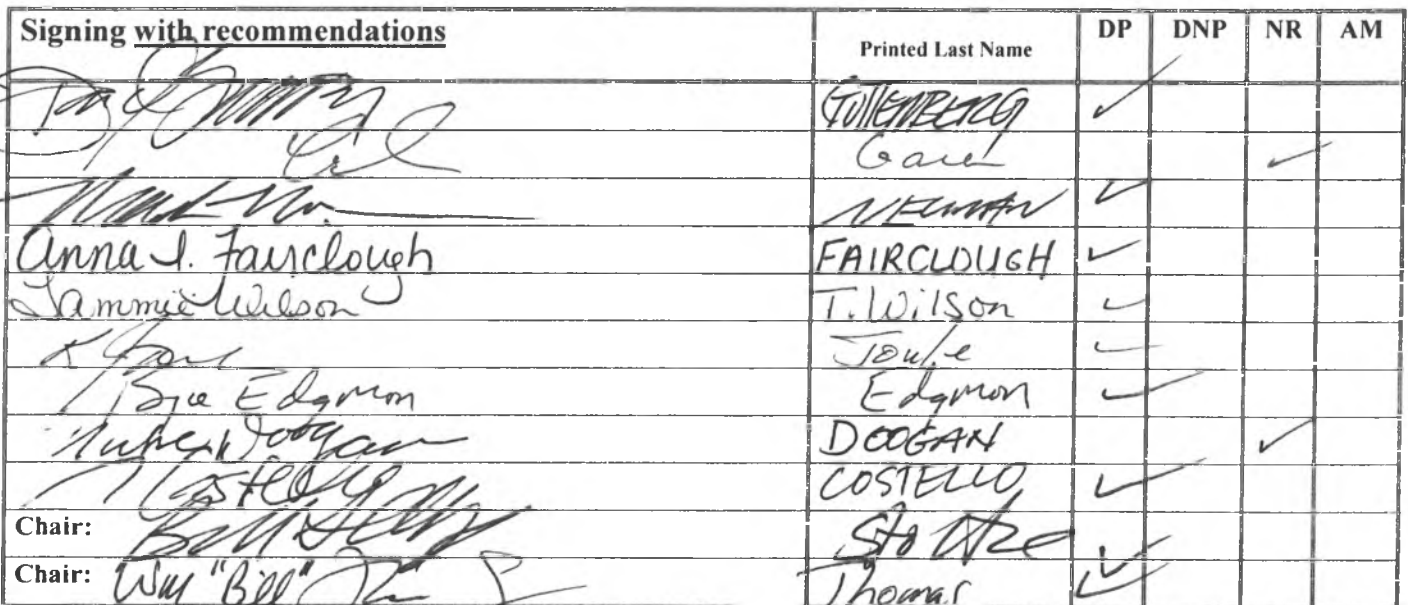 Signing with recommendations Printed Last Name DP DNP NR AM
GUTTENBERG ✓
Gara ✓
NEUMAN ✓
Anna I. Fairclough FAIRCLOUGH ✓
Tammie Wilson T. Wilson ✓
Joule ✓
Bryce Edgmon Edgmon ✓
Doogan DOOGAN ✓
Costello COSTELLO ✓
Chair: Stoltze ✓
Chair: Wm "Bill" Thomas ✓